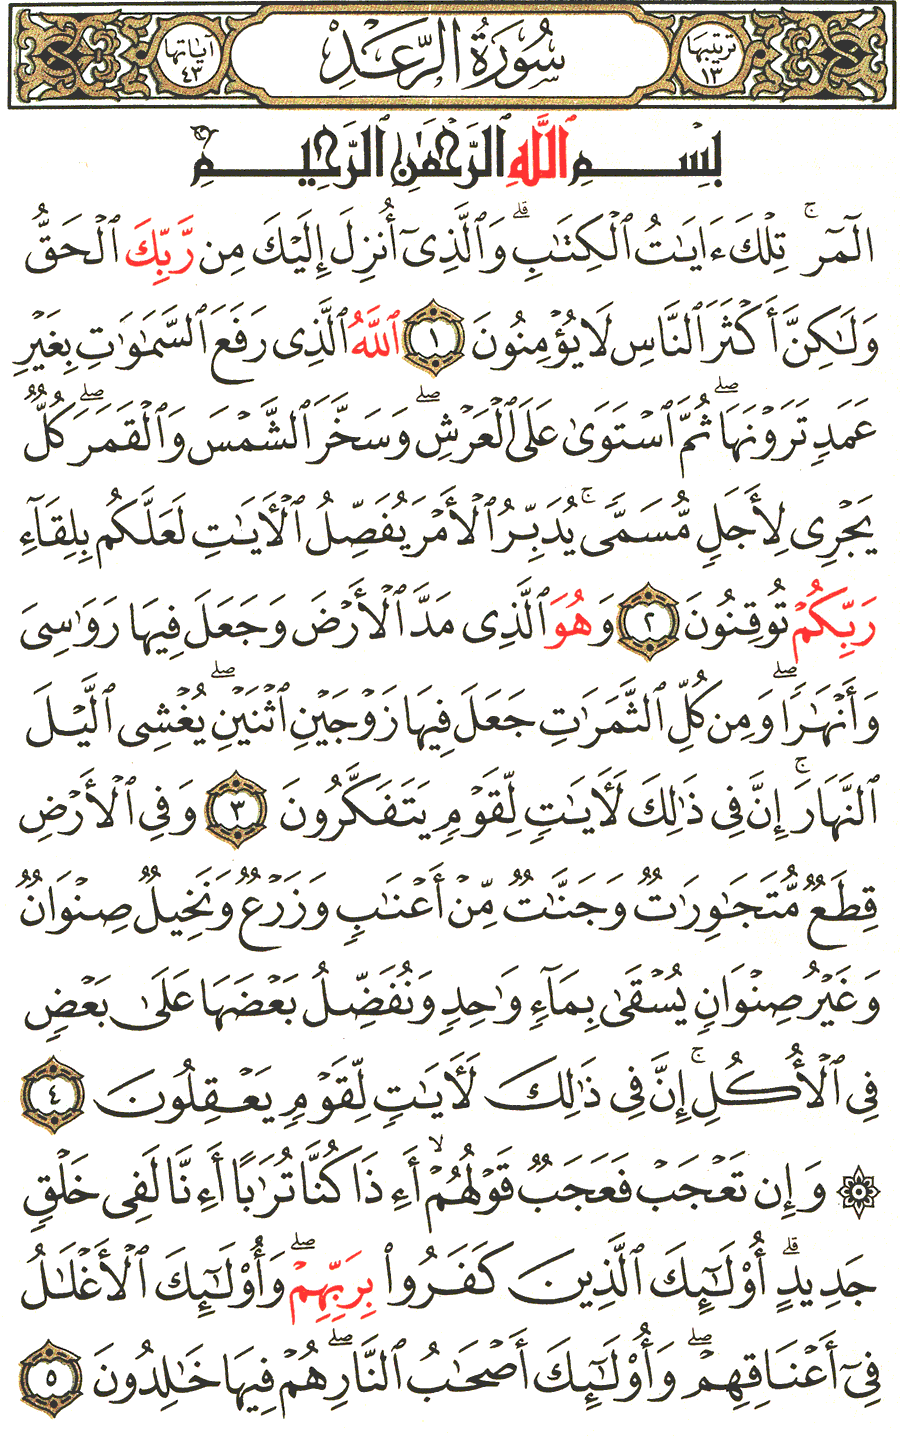 ترتيبها ١٣ سُورَةُ الرَّعْدِ آياتها ٤٣
بِسْمِ ٱللَّهِ ٱلرَّحْمَٰنِ ٱلرَّحِيمِ
الٓمٓرۚ تِلْكَ ءَايَٰتُ ٱلْكِتَٰبِۗ وَٱلَّذِىٓ أُنزِلَ إِلَيْكَ مِن رَّبِّكَ ٱلْحَقُّ
وَلَٰكِنَّ أَكْثَرَ ٱلنَّاسِ لَا يُؤْمِنُونَ ١ ٱللَّهُ ٱلَّذِى رَفَعَ ٱلسَّمَٰوَٰتِ بِغَيْرِ
عَمَدٍ تَرَوْنَهَاۖ ثُمَّ ٱسْتَوَىٰ عَلَى ٱلْعَرْشِۖ وَسَخَّرَ ٱلشَّمْسَ وَٱلْقَمَرَۖ كُلٌّ
يَجْرِى لِأَجَلٍ مُّسَمًّىۚ يُدَبِّرُ ٱلْأَمْرَ يُفَصِّلُ ٱلْأَيَٰتِ لَعَلَّكُم بِلِقَآءِ
رَبِّكُمْ تُوقِنُونَ ٢ وَهُوَ ٱلَّذِى مَدَّ ٱلْأَرْضَ وَجَعَلَ فِيهَا رَوَٰسِىَ
وَأَنْهَٰرًاۖ وَمِن كُلِّ ٱلثَّمَرَٰتِ جَعَلَ فِيهَا زَوْجَيْنِ ٱثْنَيْنِۖ يُغْشِى ٱلَّيْلَ
ٱلنَّهَارَۚ إِنَّ فِى ذَٰلِكَ لَأَيَٰتٍ لِّقَوْمٍ يَتَفَكَّرُونَ ٣ وَفِى ٱلْأَرْضِ
قِطَعٌ مُّتَجَٰوِرَٰتٌ وَجَنَّٰتٌ مِّنْ أَعْنَٰبٍ وَزَرْعٌ وَنَخِيلٌ صِنْوَانٌ
وَغَيْرُ صِنْوَانٍ يُسْقَىٰ بِمَآءٍ وَٰحِدٍ وَنُفَضِّلُ بَعْضَهَا عَلَىٰ بَعْضٍ
فِى ٱلْأُكُلِۚ إِنَّ فِى ذَٰلِكَ لَأَيَٰتٍ لِّقَوْمٍ يَعْقِلُونَ ٤
۞ وَإِن تَعْجَبْ فَعَجَبٌ قَوْلُهُمْۙ أَءِذَا كُنَّا تُرَٰبًا أَءِنَّا لَفِى خَلْقٍ
جَدِيدٍۗ أُو۟لَٰٓئِكَ ٱلَّذِينَ كَفَرُوا۟ بِرَبِّهِمْۖ وَأُو۟لَٰٓئِكَ ٱلْأَغْلَٰلُ
فِىٓ أَعْنَاقِهِمْۖ وَأُو۟لَٰٓئِكَ أَصْحَٰبُ ٱلنَّارِۖ هُمْ فِيهَا خَٰلِدُونَ ٥